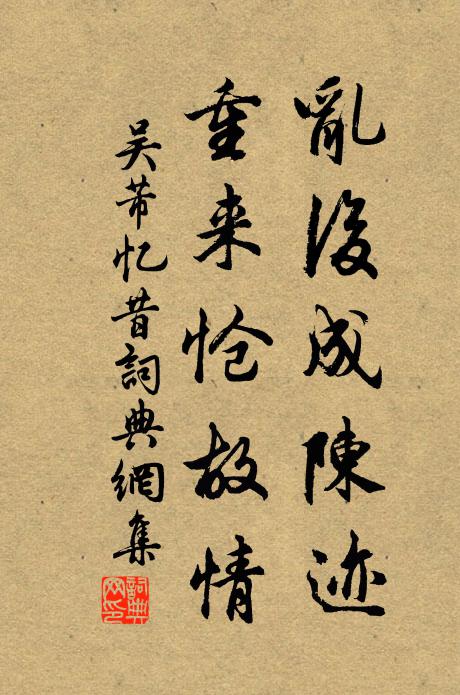 亂後成陳迹
重来怆故情
吴芾忆昔詞典網集
詞典網印